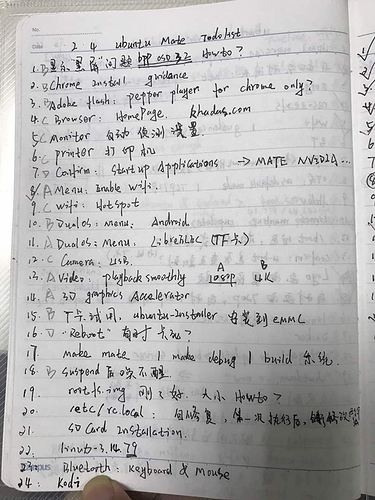 No.
Date
24 ubuntu Mate Todolist
1. B 显示"黑屏"问题 Howto?
2. B Chrome Install guidance
3. B Adobe flash: pepper player for chrome only?
4. C Browser: HomePage, khadas.com
5. C Monitor 自动侦测 设置
6. C printer 打印机
7. D Confirm startup Applications → MATE
8. A Menu: Enable wifi.
9. C wifi: HotSpot
10. B Dual os: Menu, Android
11. A Dual os: Menu, LibreELEC (TF卡)
12. C Camera: USB
A B
13. A Video: playback smoothly 1080P 4K
14. A 3D graphics Accelerator
15. B T卡试用, ubuntu-Installer 安装到 eMMC
16. D "Reboot" 有时卡死?
17. make mate | make debug | build 系统.
18. B suspend 后唤不醒
19. rootfs.img 刚了好. 大小 Howto?
20. /etc/rc.local: 自修复, 第一次执行后,
21. SD Card Installation.
22. linux-3.14.79
campus
23. Bluetooth: Keyboard & Mouse
24: Kodi